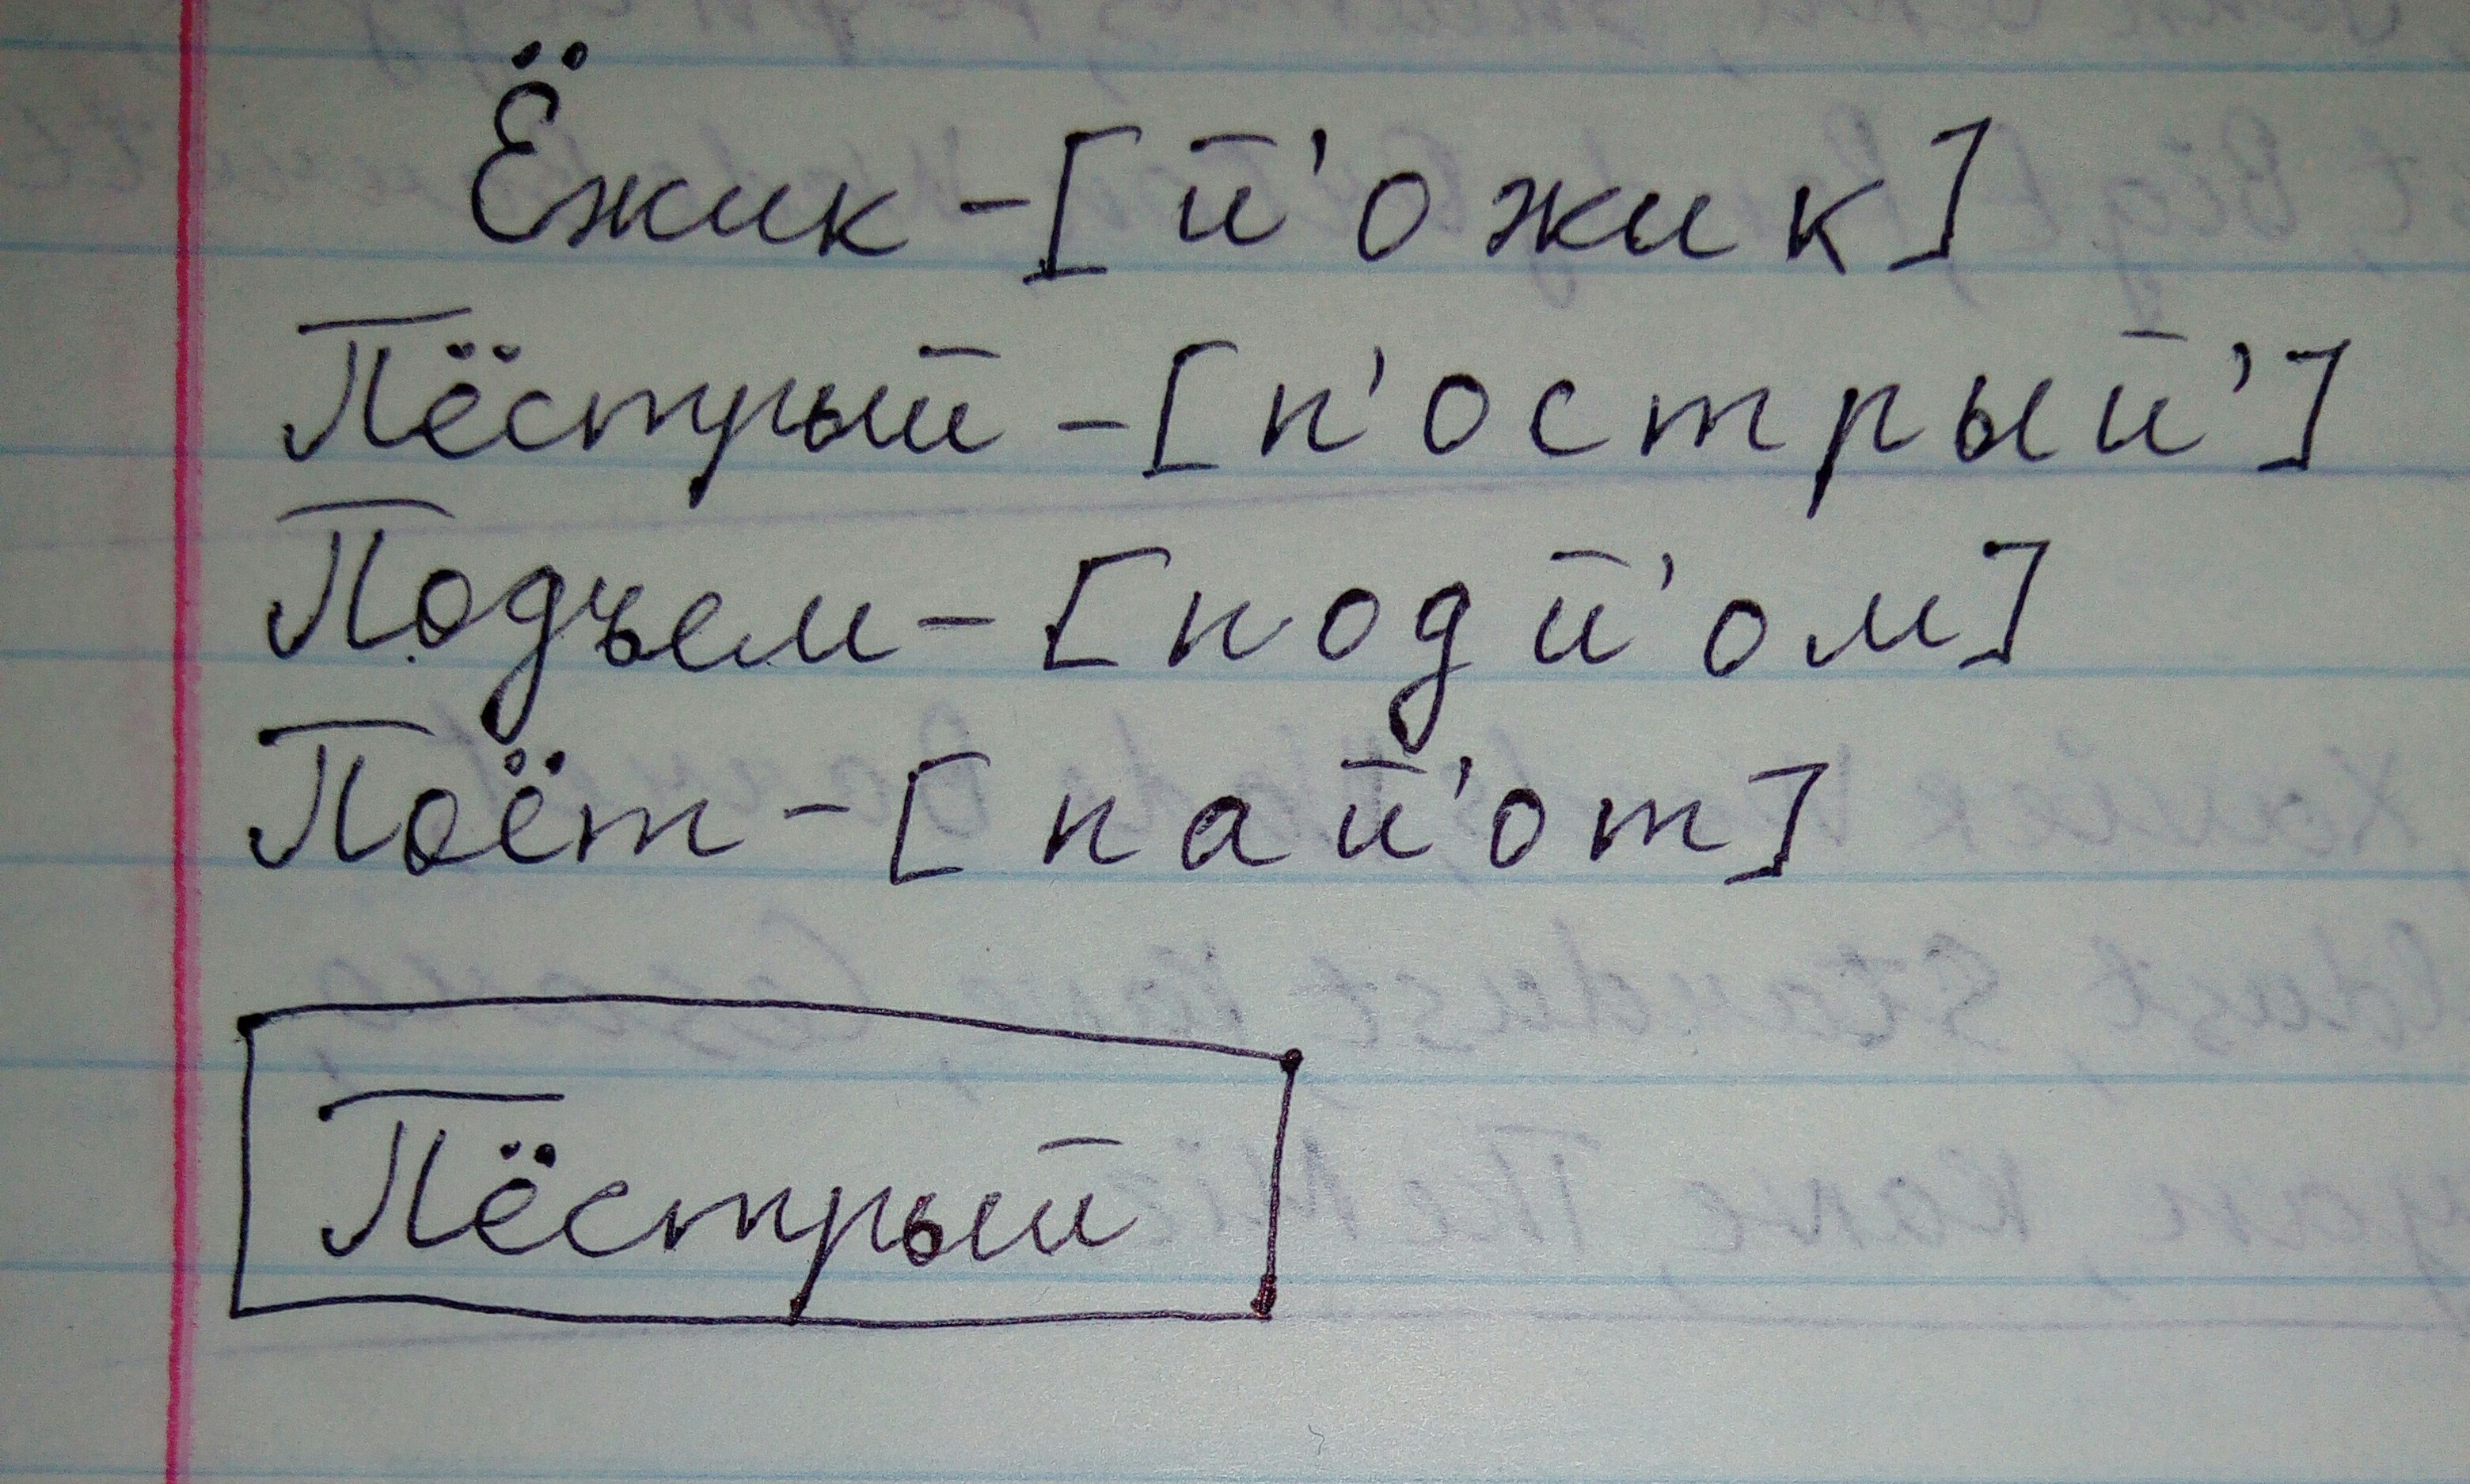 Ёжик - [й'ожик]
Пёстрый - [п'острый']
Подъем - [подй'ом]
Поёт - [пай'от]
Пёстрый